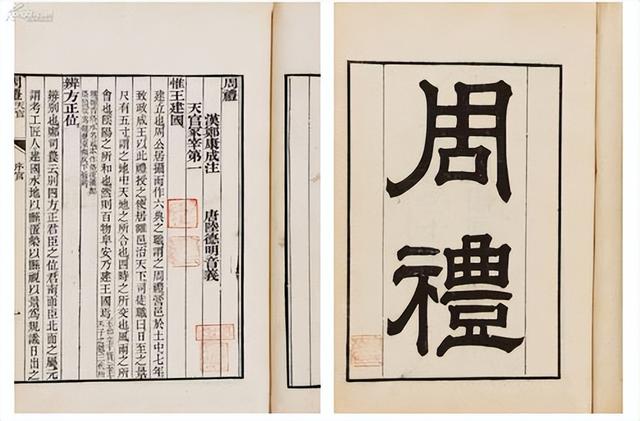 周禮
漢鄭康成注　唐陸德明音義
天官冢宰第一
惟王建國
建立也周公居攝而作六典之職謂之周禮營邑於土中七年
致政成王以此禮授之使居雒邑治天下司徒職曰日至之景
尺有五寸謂之地中天地之所合也四時之所交也風雨之所
會也陰陽之所和也然則百物阜安乃建王國焉
辨方正位
辨別也鄭司農云別四方正君臣之位君南面臣北面之屬元
謂考工匠人建國水地以縣置槷以縣視以景爲規識日出之
周禮　天官　序官　一
周禮